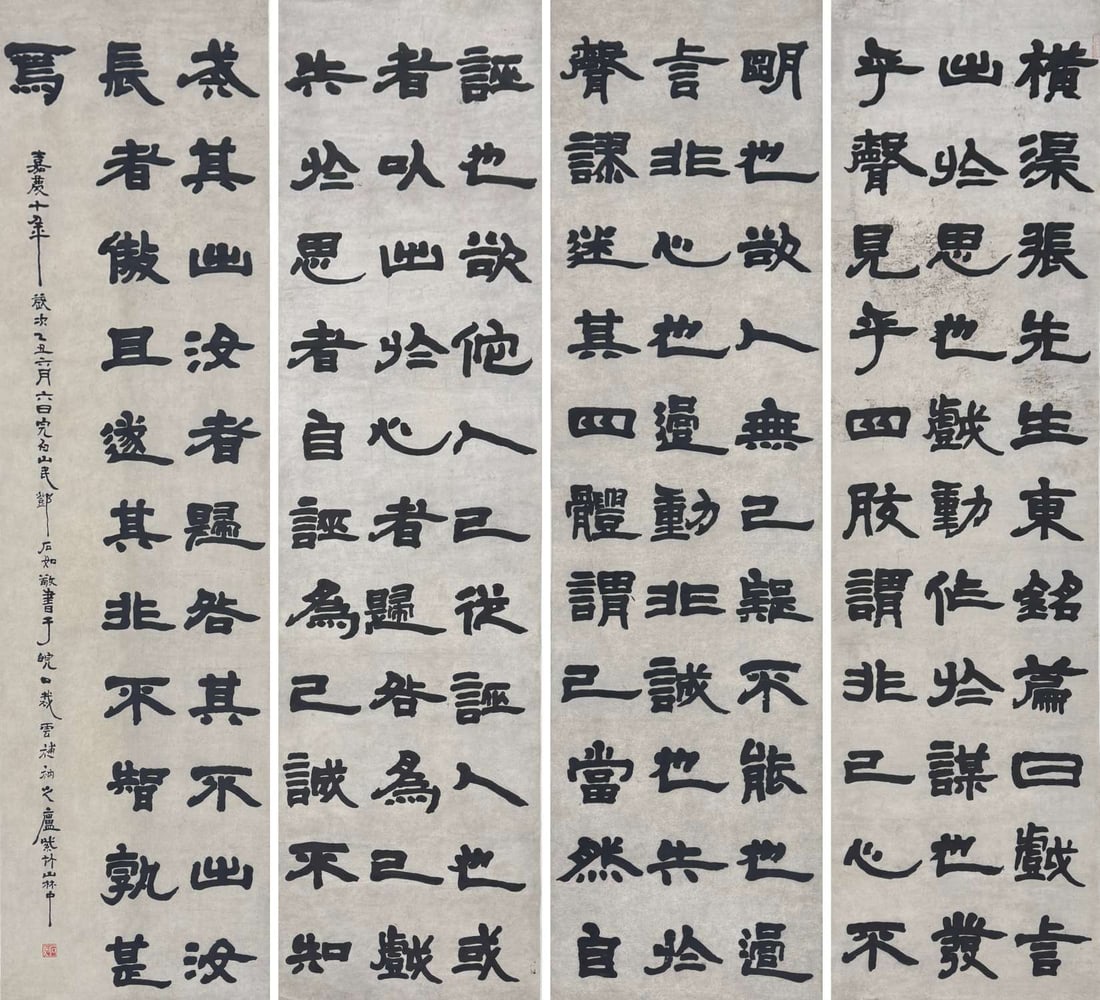 橫渠張先生東銘篇曰戲言
出於思也戲動作於謀也發
乎聲見乎四肢謂非己心不
明也欲人無己疑不能也過
言非心也過動非誠也失於
聲謬迷其四體謂己當然自
誣也欲他人己從誣人也或
者以出於心者歸咎為己戲
失於思者自誣為己誠不知
戒其出汝者歸咎其不出汝
長者傲且遂其非不智孰甚
焉
嘉慶十年歲次乙丑六月六日完白山民鄧石如敬書于皖口裁雲補衲之廬紫竹山林中